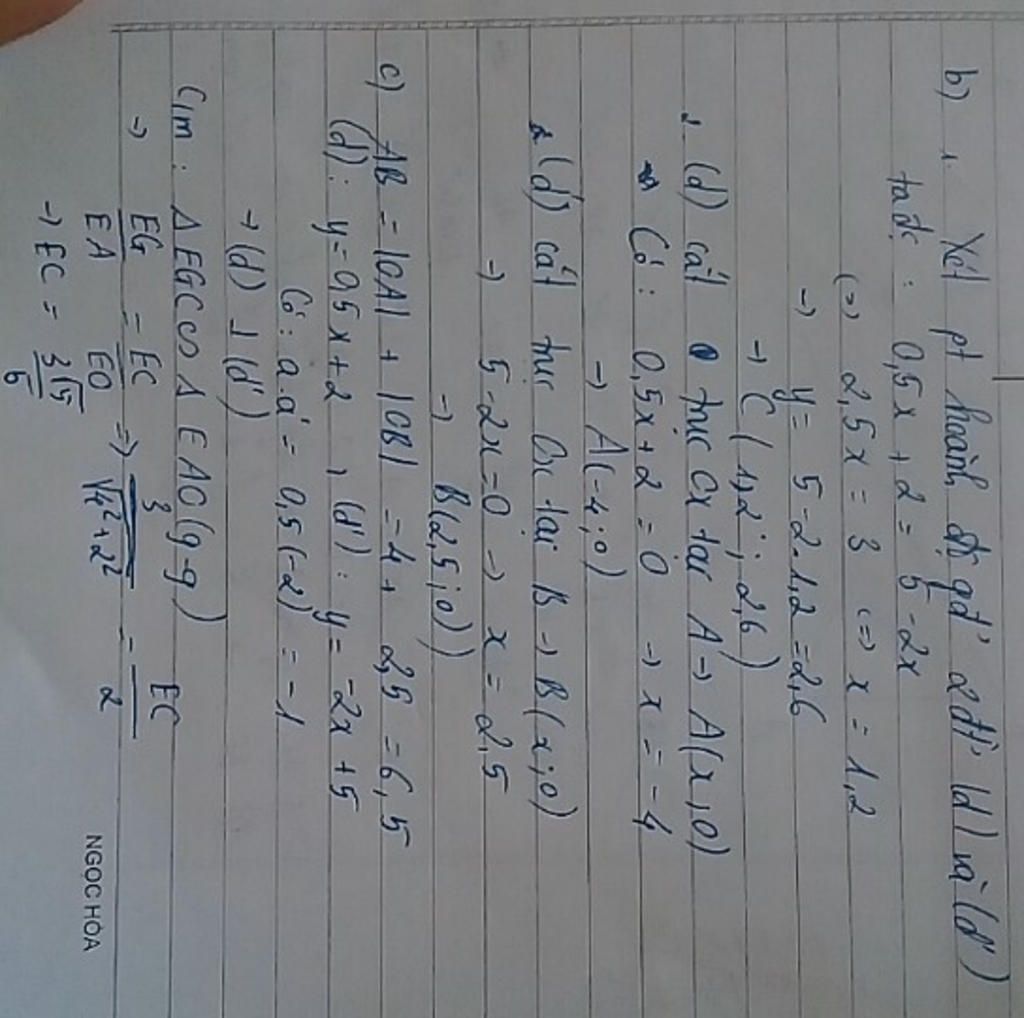 b) 1. Xét pt hoành độ gđ' 2đt' (d) và (d')
tađc: 0,5x + 2 = 5 - 2x
(=) 2,5x = 3 (=) x = 1,2
→ y = 5 - 2.1,2 = 2,6
→ C (1,2 ; 2,6)
2. (d) cắt trục Ox tại A → A(x,0)
Có: 0,5x + 2 = 0 → x = -4
→ A(-4;0)
2 (d') cắt trục Ox tại B → B(x;0)
→ 5-2x=0 → x = 2,5
→ B(2,5;0))
c) AB = |OA| + |OB| = 4 + 2,5 = 6,5
(d): y = 0,5x+2 , (d'): y = -2x+5
Có: a.a' = 0,5(-2) = -1
→ (d) ⊥ (d')
C/m: Δ EGC ∽ Δ EAO (g-g)
→ EG/EA = EC/EO => 3/√4²+2² = EC/2
→ EC = 3√5/5
NGỌC HÒA